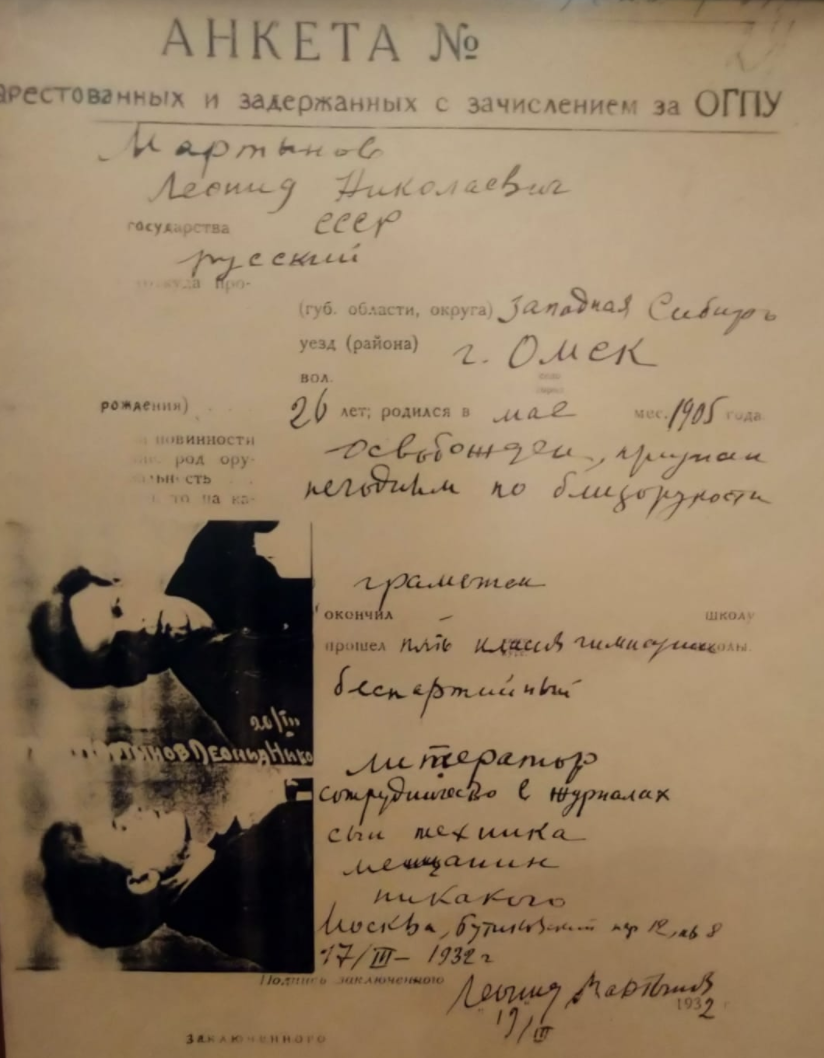 АНКЕТА №
арестованных и задержанных с зачислением за ОГПУ
Мартынов
Леонид Николаевич
государства СССР
русский
откуда про-
(губ. области, округа) Западная Сибирь
уезд (района) г. Омск
вол.
рождения) 26 лет; родился в мае мес. 1905 года.
повинности освобожден, признан
род ору-
негодным по близорукости
то на ка-
грамотен
окончил школу
прошел пять классов гимназии школы.
беспартийный
20/III
Мартынов Леонид Нико
литератор
сотрудничество в журналах
сын техника
мещанин
никакого
Москва, Бутиковский пер 12, кв 8
17/III - 1932 г
Подпись заключенного Леонид Мартынов
19/III 1932 г
заключенного